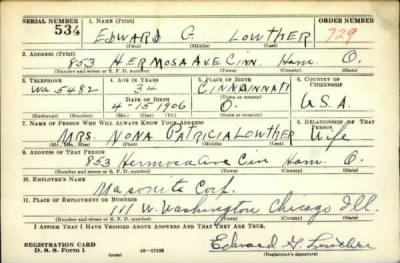 SERIAL NUMBER 1. NAME (Print) ORDER NUMBER
534 EDWARD G. LOWTHER 729
(First) (Middle) (Last)
2. ADDRESS (Print)
853 HERMOSA AVE CINN. Ham. O.
(Number and street or R. F. D. number) (Town) (County) (State)
3. TELEPHONE 4. AGE IN YEARS 5. PLACE OF BIRTH 6. COUNTRY OF CITIZENSHIP
Wa 5482 34 CINCINNATI
DATE OF BIRTH (Town or county)
4-15-1906 O. U.S.A.
(Exchange) (Number) (Mo.) (Day) (Yr.) (State or country)
7. NAME OF PERSON WHO WILL ALWAYS KNOW YOUR ADDRESS 8. RELATIONSHIP OF THAT PERSON
MRS. NONA PATRICIA LOWTHER Wife
(Mr., Mrs., Miss) (First) (Middle) (Last)
9. ADDRESS OF THAT PERSON
853 Hermosa Ave Cin Ham. O.
(Number and street or R. F. D. number) (Town) (County) (State)
10. EMPLOYER'S NAME
Masonite Corp.
11. PLACE OF EMPLOYMENT OR BUSINESS
111 W. Washington Chicago Ill.
(Number and street or R. F. D. number) (Town) (County) (State)
I AFFIRM THAT I HAVE VERIFIED ABOVE ANSWERS AND THAT THEY ARE TRUE.
REGISTRATION CARD
D. S. S. Form 1 (over) Edward G. Lowther
(Registrant's signature)